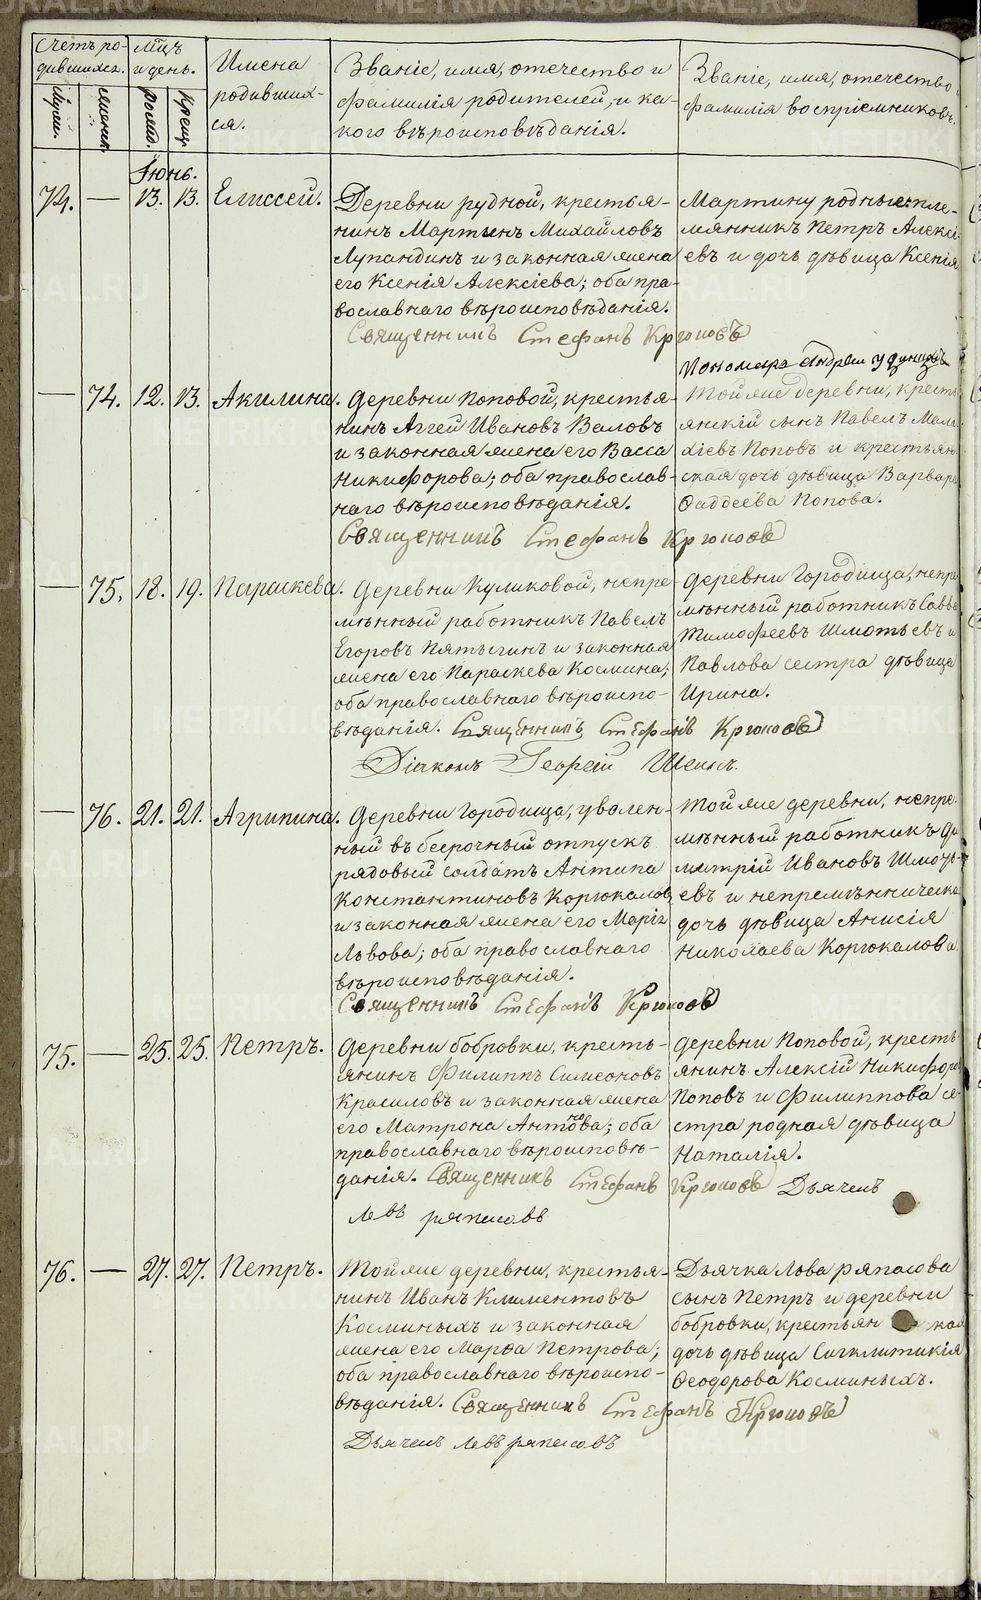 Счетъ ро-
дившихся.
Мѣсяцъ
и день.
Имена
родивших-
ся.
Званіе, имя, отечество и
фамилія родителей, и ка-
кого вѣроисповѣданія.
Званіе, имя, отечество и
фамилія воспріемниковъ.
Муж.
женск.
Рожд.
Крещ.
Іюнь.
74. — 13. 13. Елиссей.
Деревни рудной, крестья-
нинъ Мартинъ Михайловъ
Лупандинъ и законная жена
его Ксенія Алексіева; оба пра-
вославнаго вѣроисповѣданія.
Мартину родный пле-
мянникъ Петръ Алексі-
евъ и дочь дѣвица Ксенія
Священникъ Стефанъ Крюковъ
Пономарь Андрей
— 74. 12. 13. Акилина.
Деревни Поповой, крестья-
нинъ Аггей Ивановъ Валовъ
и законная жена его Васса
Никифорова; оба православ-
наго вѣроисповѣданія.
Той же деревни, кресть-
янскій сынъ Павелъ Мала-
хіевъ Поповъ и крестьян-
ская дочь дѣвица Варвара
Фаддеева Попова.
Священникъ Стефанъ Крюковъ
— 75. 18. 19. Параскева.
Деревни Куликовой, непре-
мѣнный работникъ Павелъ
Егоровъ Пятыгинъ и законная
жена его Параскева Космина;
оба православнаго вѣроиспо-
вѣданія. Священникъ Стефанъ Крюковъ
Деревни Городища, непре-
мѣнный работникъ Савва
Тимофеевъ Шмотьевъ и
Павлова сестра дѣвица
Ирина.
Діаконъ Георгій Шеинъ.
— 76. 21. 21. Агрипина.
Деревни Городища, уволен-
ный въ безсрочный отпускъ
рядовый солдатъ Антипа
Константиновъ Корюкаловъ
и законная жена его Марія
Львова; оба православнаго
вѣроисповѣданія.
Той же деревни, непре-
мѣнный работникъ Ди-
митрій Ивановъ Шмоть-
евъ и непремѣнническа
дочь дѣвица Анисія
Николаева Корюкалова
Священникъ Стефанъ Крюковъ
75. — 25. 25. Петръ.
Деревни бобровки, кресть-
янинъ Филиппъ Симеоновъ
Красиловъ и законная жена
его Матрона Антонова; оба
православнаго вѣроисповѣ-
данія. Священникъ Стефанъ Крюковъ Дьячекъ
Левъ ряпасовъ
Деревни Поповой, кресть-
янинъ Алексій Никифоровъ
Поповъ и Филиппова се-
стра родная дѣвица
Наталія.
76. — 27. 27. Петръ.
Той же деревни, крестья-
нинъ Иванъ Климентовъ
Косминыхъ и законная
жена его Марфа Петрова;
оба православнаго вѣроиспо-
вѣданія. Священникъ Стефанъ Крюковъ
Дьячекъ Левъ ряпасовъ
Дьячка Лва ряпасова
сынъ Петръ и деревни
бобровки, крестьян кая
дочь дѣвица Сигклитикія
Феодорова Косминыхъ.
METRIKI.GASU-URAL.RU